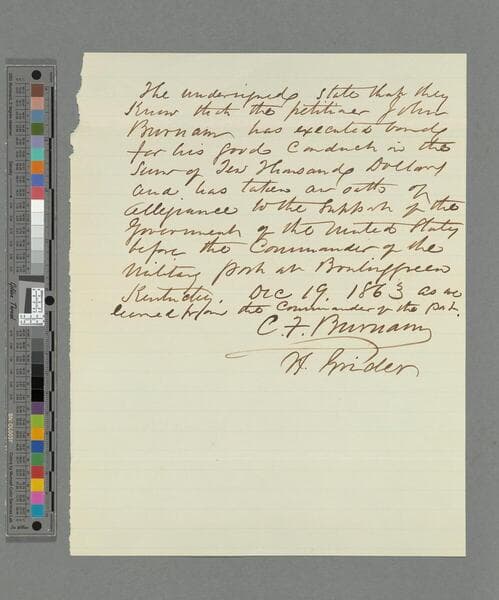 The undersigned state that they
know that the petitioner John
Burnam has executed bond
for his good conduct in the
sum of Ten Thousand Dollars
and has taken an oath of
allegiance to the support of the
Government of the United States
before the Commander of the
Military post at Bowlinggreen
Kentucky. Dec 19. 1863 as we
learned from the Commander of the post.
C. F. Burnam
H. Grider